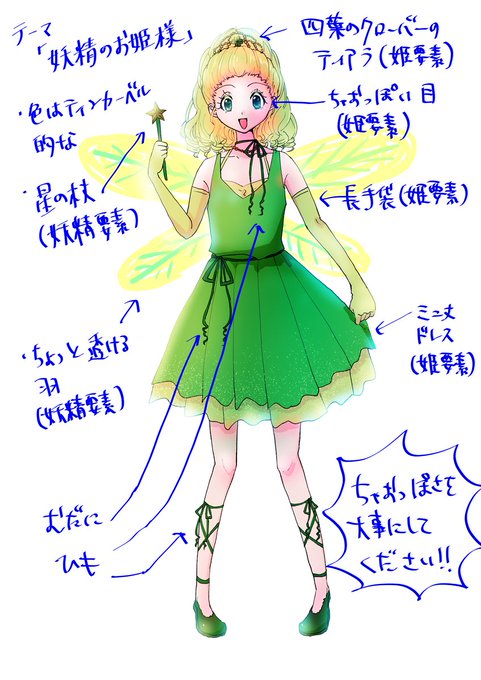 テーマ
「妖精のお姫様」
・色はティンカーベル
的な
・星の杖
(妖精要素)
・ちょっと透ける
羽
(妖精要素)
むだに
ひも
四葉のクローバーの
ティアラ(姫要素)
ちゃおっぽい目
(姫要素)
長手袋(姫要素)
ミニ丈
ドレス
(姫要素)
ちゃおっぽさを
大事にして
ください!!